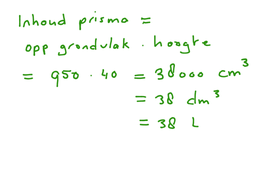 Inhoud prisma =
opp grondvlak . hoogte
= 950 . 40 = 38000 cm³
= 38 dm³
= 38 L